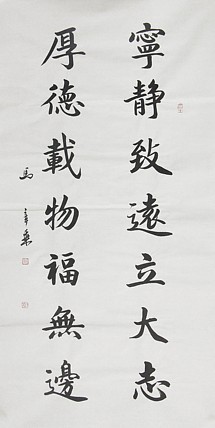 寧静致遠立大志
厚德載物福無邊